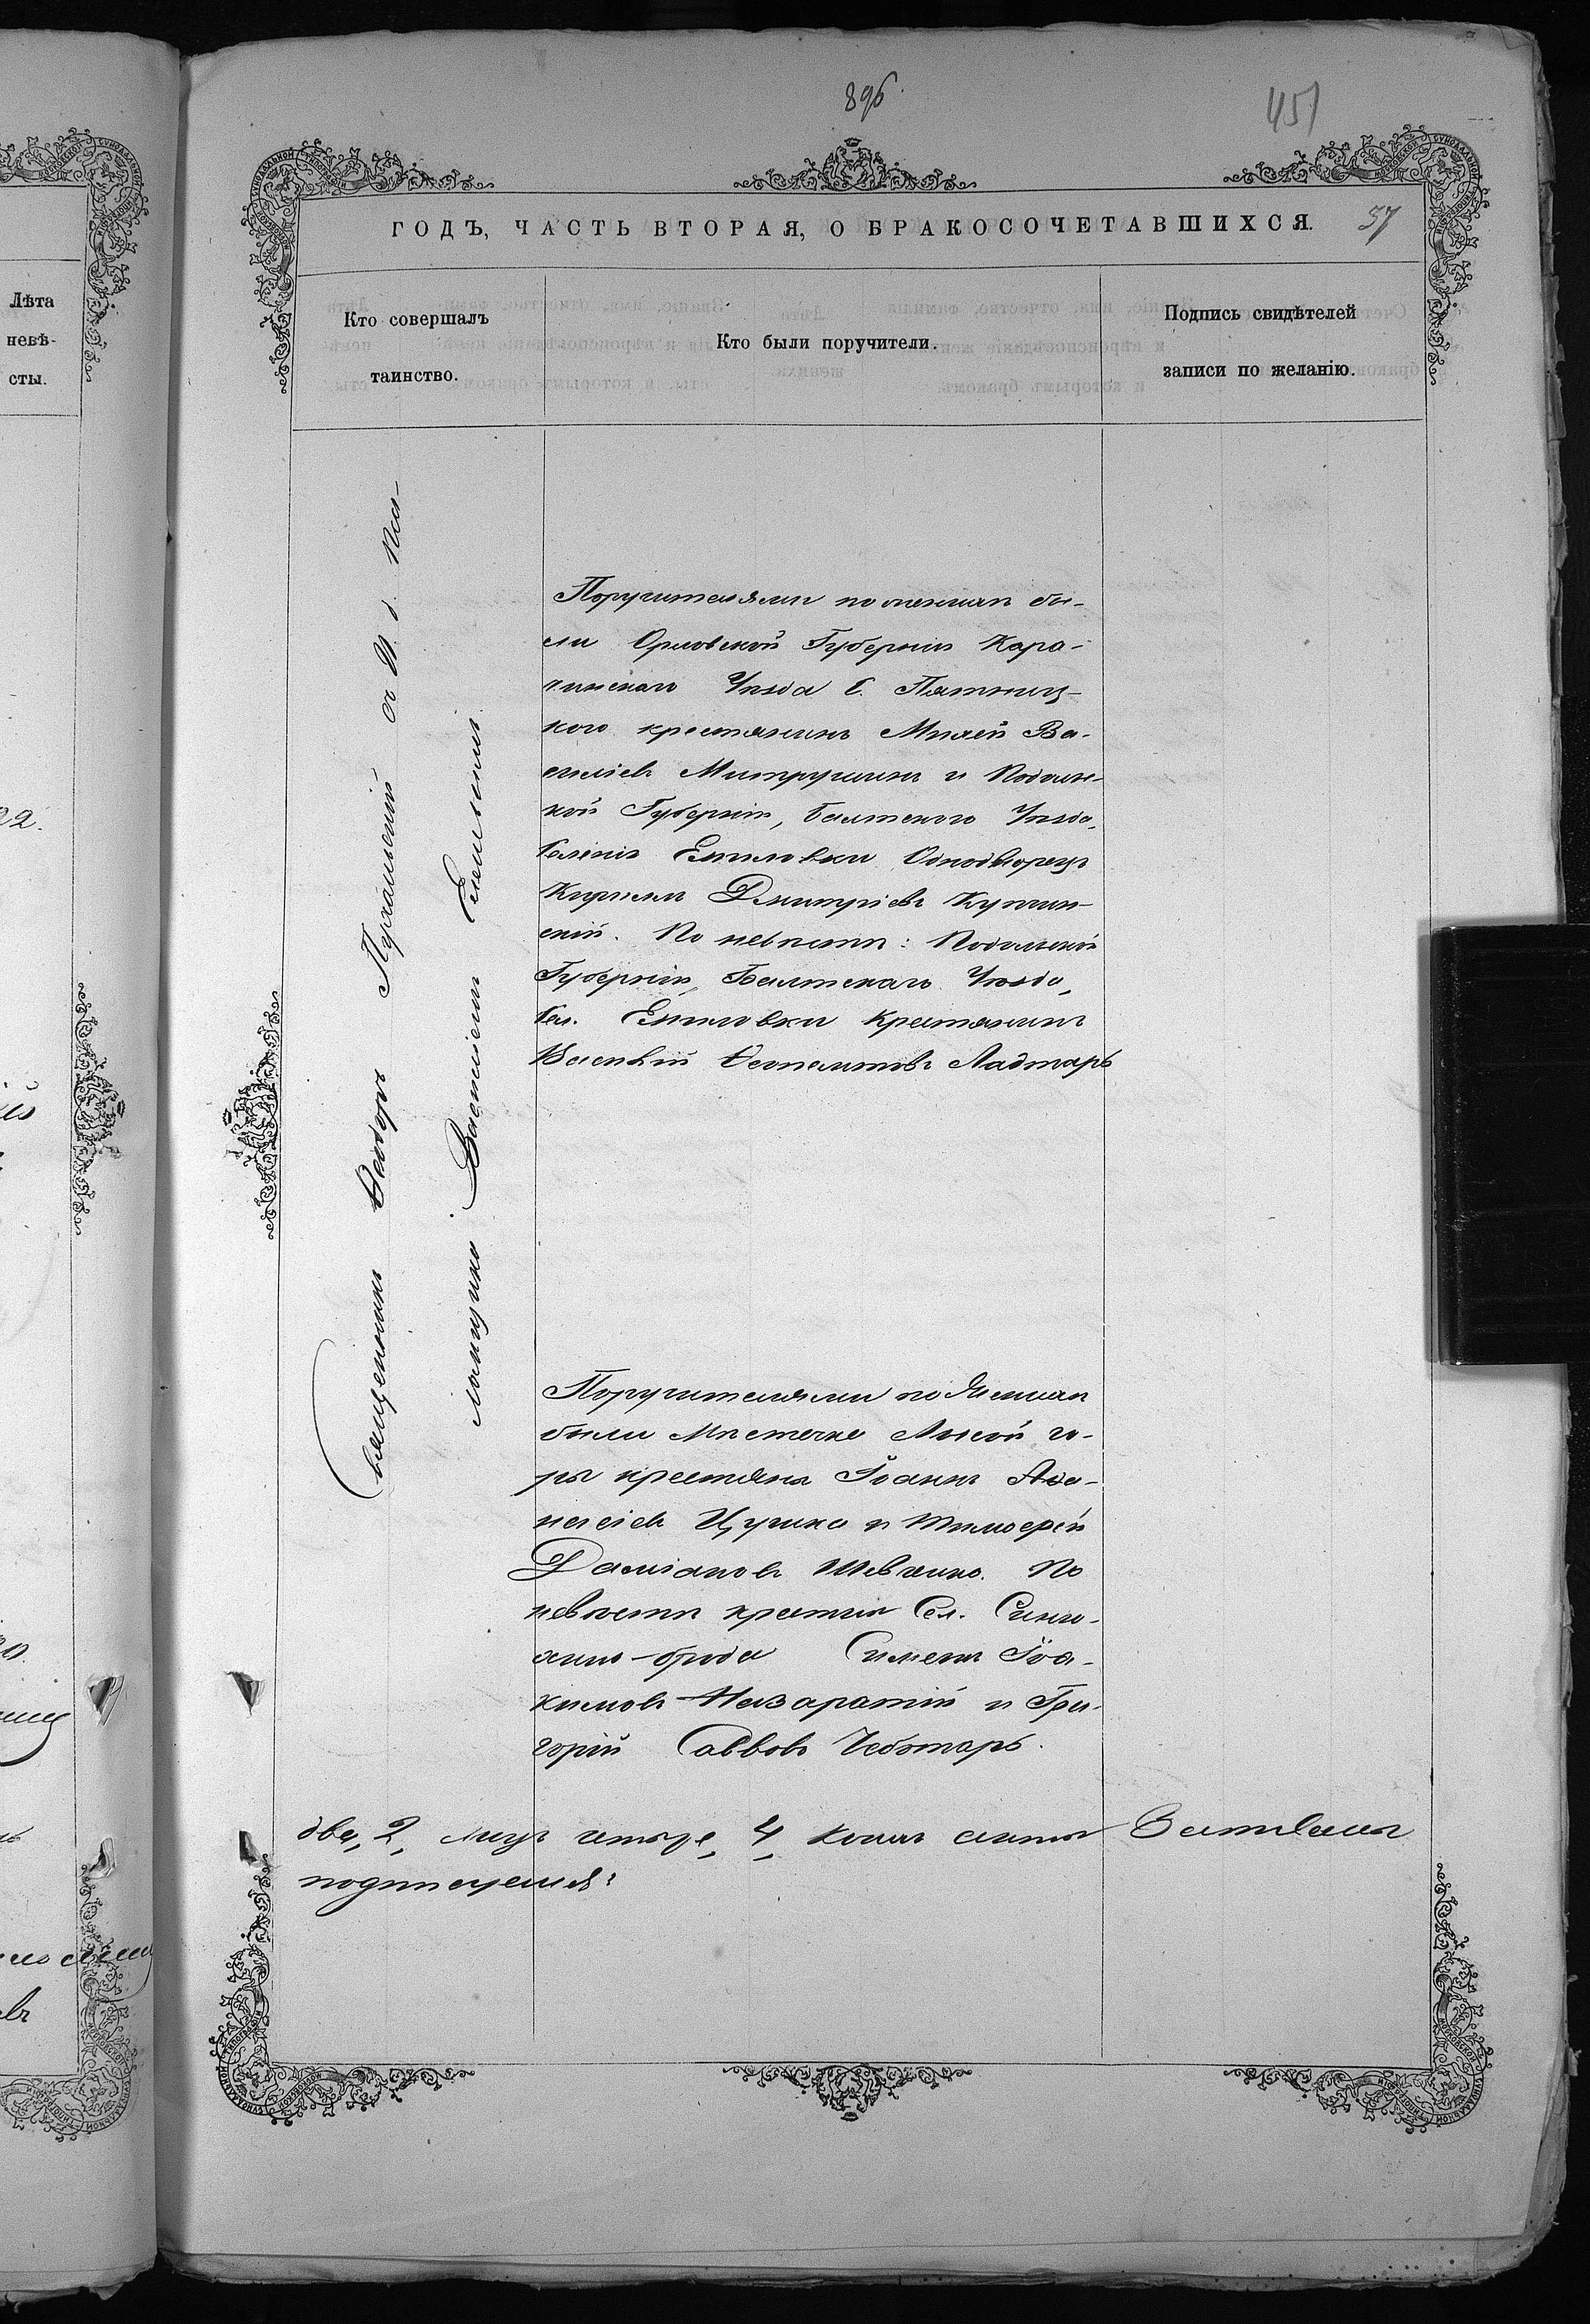 896.
451
ГОДЪ, ЧАСТЬ ВТОРАЯ, О БРАКОСОЧЕТАВШИХСЯ.
57
Лѣта
невѣ-
сты.
Кто совершалъ
таинство.
Кто были поручители.
Подпись свидѣтелей
записи по желанію.
Священникъ Ѳеодоръ съ И. д. Пса-
ломщика Василіемъ
Поручителями по женихѣ бы-
ли Орловской Губерніи Кара-
чинскаго Уѣзда С. Пятниц-
кого крестянинъ Михей Ва-
силіевъ Митрушинъ и Подоль-
кой Губерніи, Балтского Уѣзда,
Селенія Емиловки Однодворецъ
Кирилъ Дмитріевъ
скій. По невѣстѣ: Подольской
Губерніи, Балтскаго Уѣзда,
Сел. Емиловки Крестянинъ
Василій Ладтарь
Поручителями по Женихѣ
были Мѣстечка Лисой го-
ры крестяны Іоаннъ Аѳа-
насіевъ и Тимоѳей
Даміановъ Шевченко. По
невѣстѣ крестяни Сел. Синю-
хино-брода Симеонъ Іоа-
кимовъ Назаратій и Гри-
горій Саввовъ Чеботарь.
два, 2, лицъ четыре, 4, коимъ актъ
подписуемся: